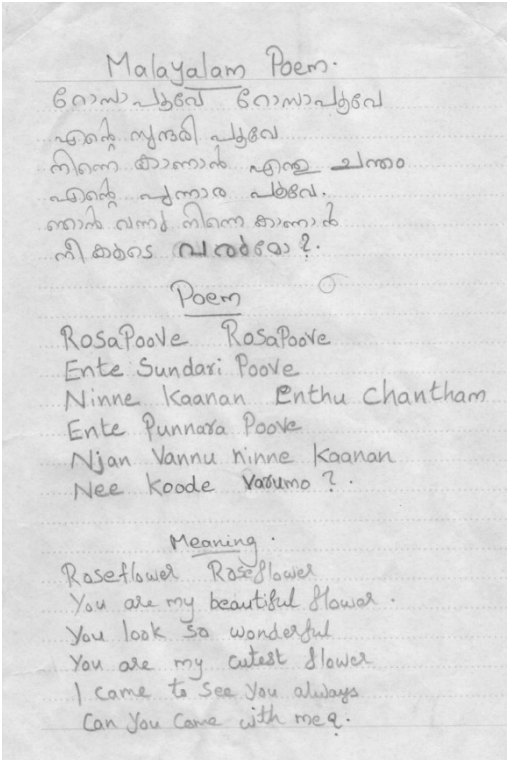 Malayalam Poem.
റോസാപൂവേ റോസാപൂവേ
എന്റെ സുന്ദരി പൂവേ
നിന്നെ കാണാൻ എന്തു ചന്തം
എന്റെ പുന്നാര പൂവേ.
ഞാൻ വന്നു നിന്നെ കാണാൻ
നീ കൂടെ വരുമോ ?.
Poem
RosaPoove RosaPoove
Ente Sundari Poove
Ninne Kaanan Enthu Chantham
Ente Punnara Poove
Njan Vannu ninne Kaanan
Nee Koode Varumo ?.
Meaning.
Roseflower Roseflower
You are my beautiful flower.
You look so wonderful
You are my cutest flower
I came to see you always
Can you come with me?.